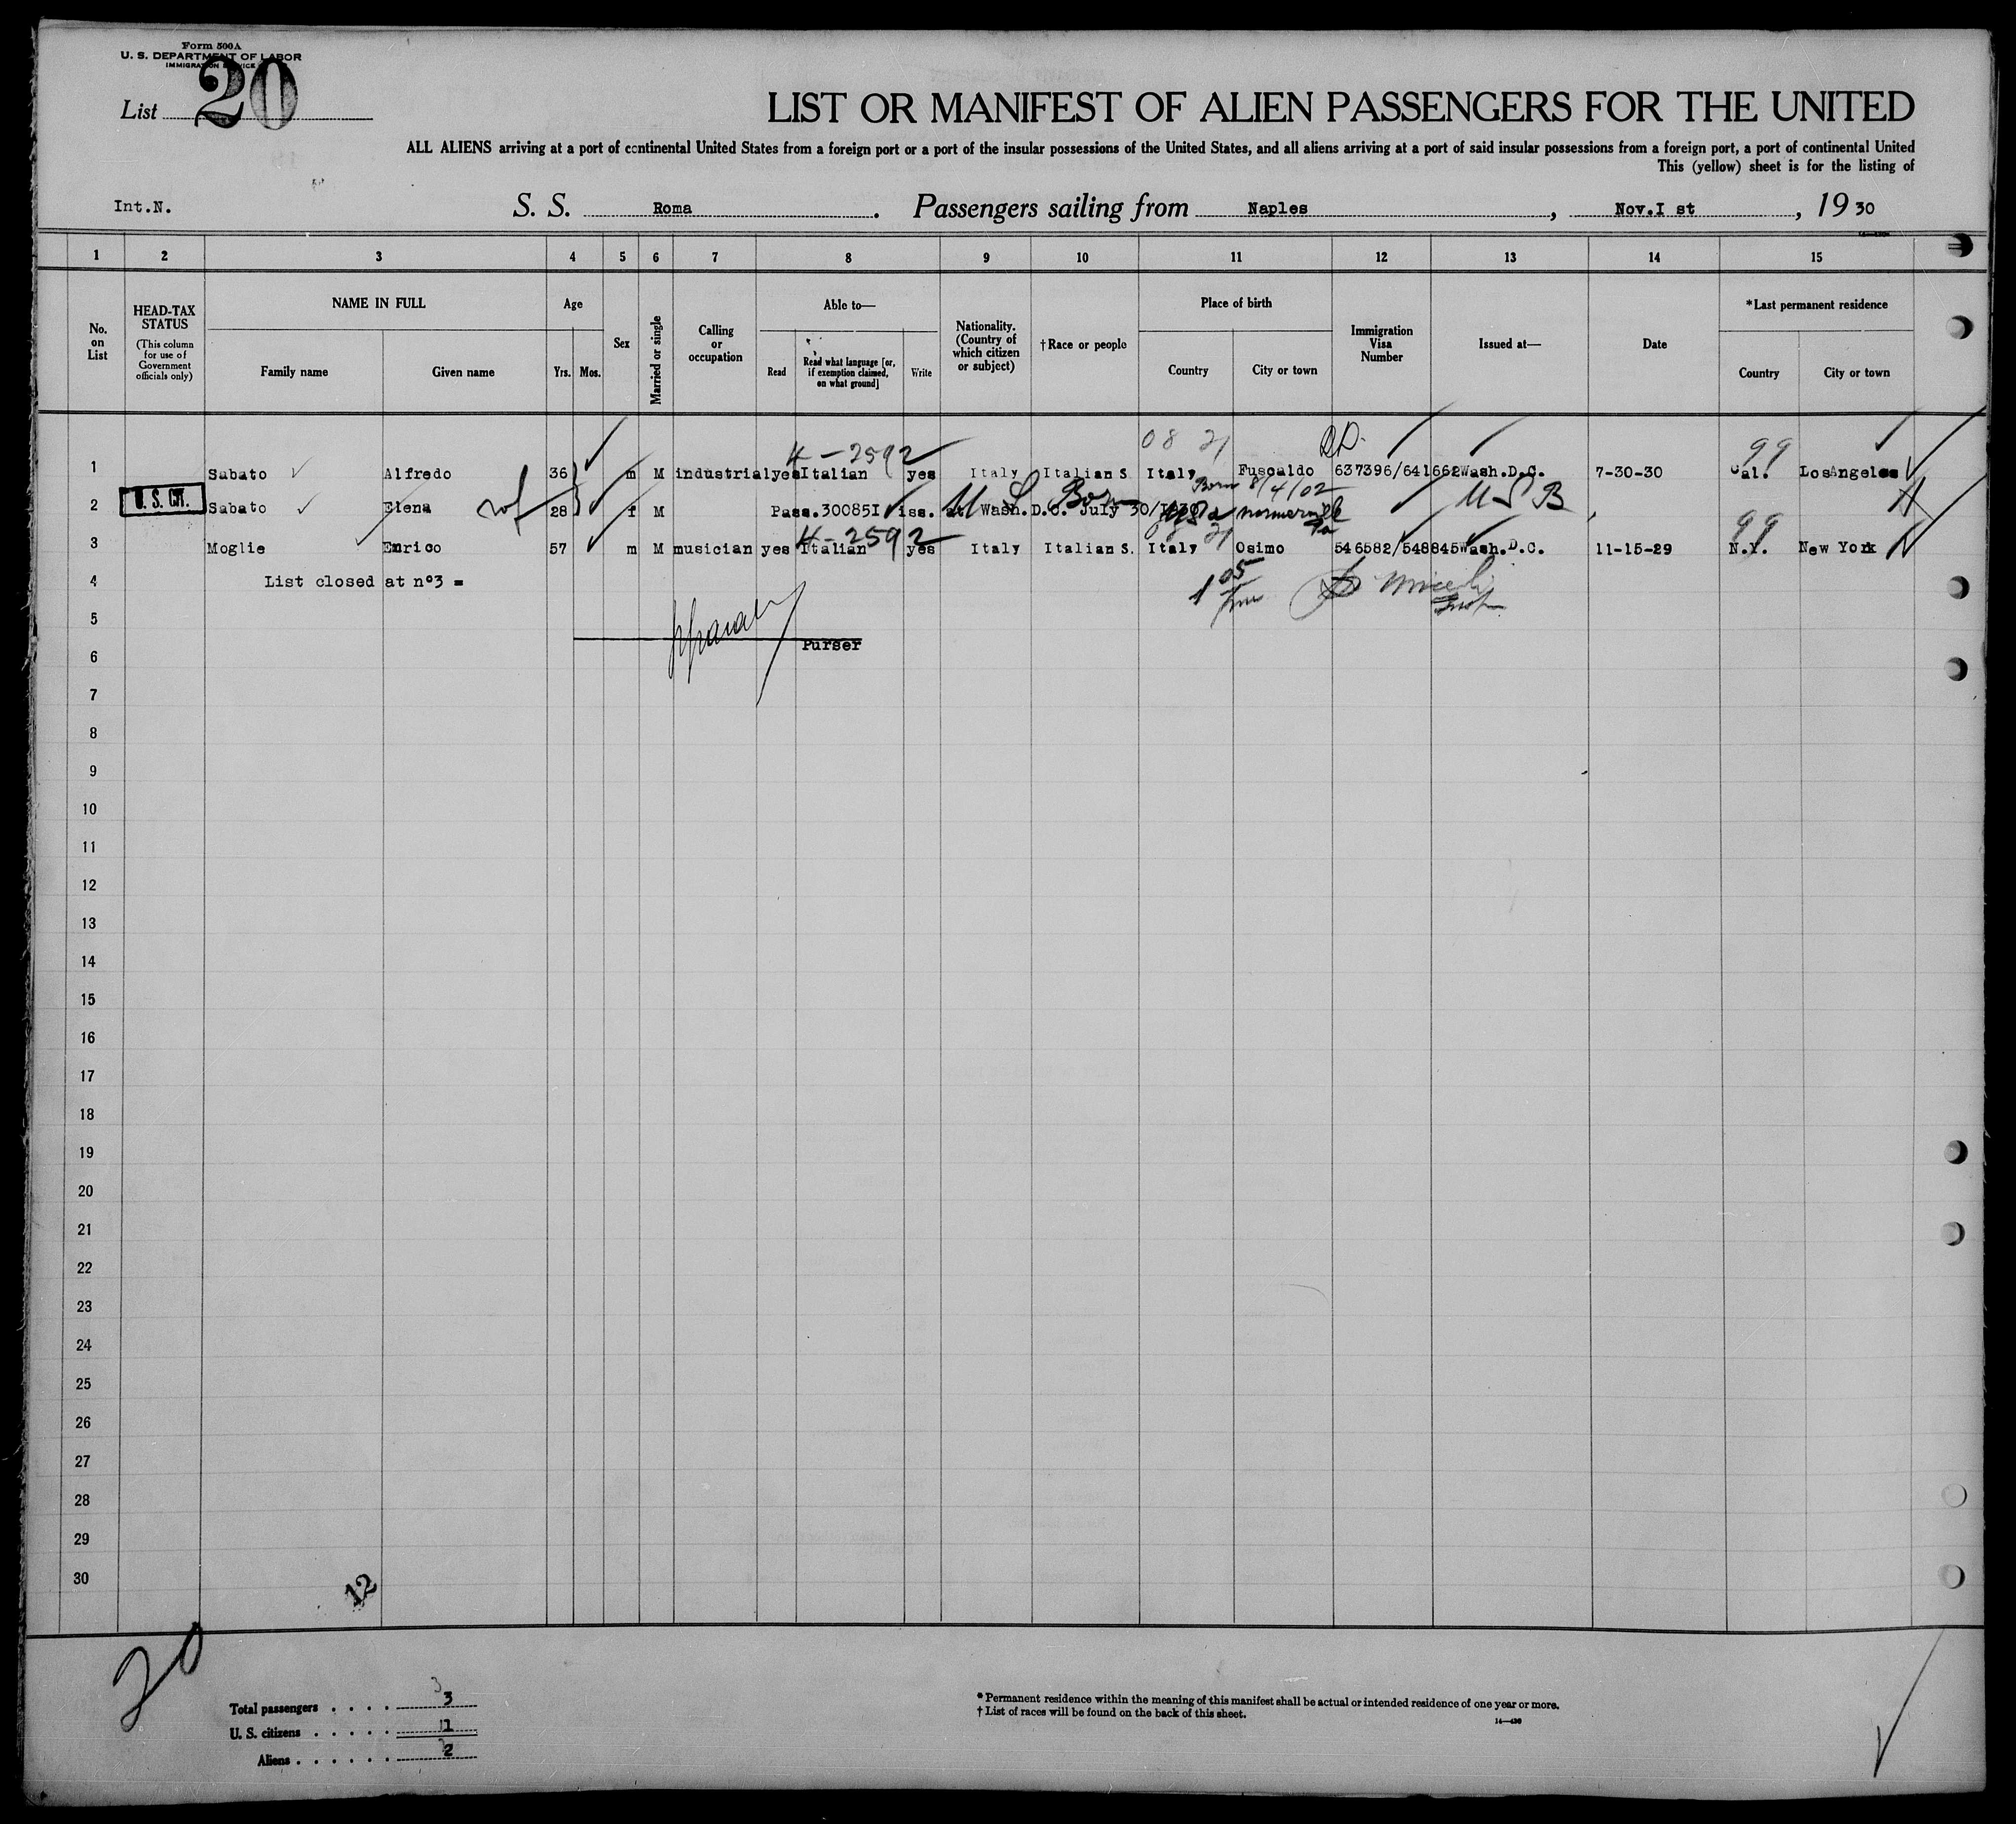 Form 500A
U. S. DEPARTMENT OF LABOR
IMMIGRATION SERVICE
List 20
LIST OR MANIFEST OF ALIEN PASSENGERS FOR THE UNITED
ALL ALIENS arriving at a port of continental United States from a foreign port or a port of the insular possessions of the United States, and all aliens arriving at a port of said insular possessions from a foreign port, a port of continental United
This (yellow) sheet is for the listing of
Int.N. S. S. Roma. Passengers sailing from Naples, Nov.I st, 1930
1 2 3 4 5 6 7 8 9 10 11 12 13 14 15
No. on List
HEAD-TAX STATUS
(This column for use of Government officials only)
NAME IN FULL
Family name Given name
Age
Yrs. Mos.
Sex
Married or single
Calling or occupation
Able to—
Read
Read what language [or, if exemption claimed, on what ground]
Write
Nationality. (Country of which citizen or subject)
†Race or people
Place of birth
Country City or town
Immigration Visa Number
Issued at—
Date
*Last permanent residence
Country City or town
4-2592 08 21 99
1 Sabato Alfredo 36 m M industrial yes Italian yes Italy Italian S. Italy Fuscaldo 637396/641662 Wash.D.C. 7-30-30 Cal. LosAngeles
Born 8/4/02
2 U. S. CIT. Sabato Elena 28 f M Pass.30085I iss. at Wash.D.C. July 30/1930 U S Born U S B
4-2592 21 99
3 Moglie Enrico 57 m M musician yes Italian yes Italy Italian S. Italy Osimo 546582/548845 Wash.D.C. 11-15-29 N.Y. New York
4 List closed at n°3 =
5
Purser
6
7
8
9
10
11
12
13
14
15
16
17
18
19
20
21
22
23
24
25
26
27
28
29
30
12
20
Total passengers . . . . 3
U. S. citizens . . . . . 1
Aliens . . . . . . 2
* Permanent residence within the meaning of this manifest shall be actual or intended residence of one year or more.
† List of races will be found on the back of this sheet.